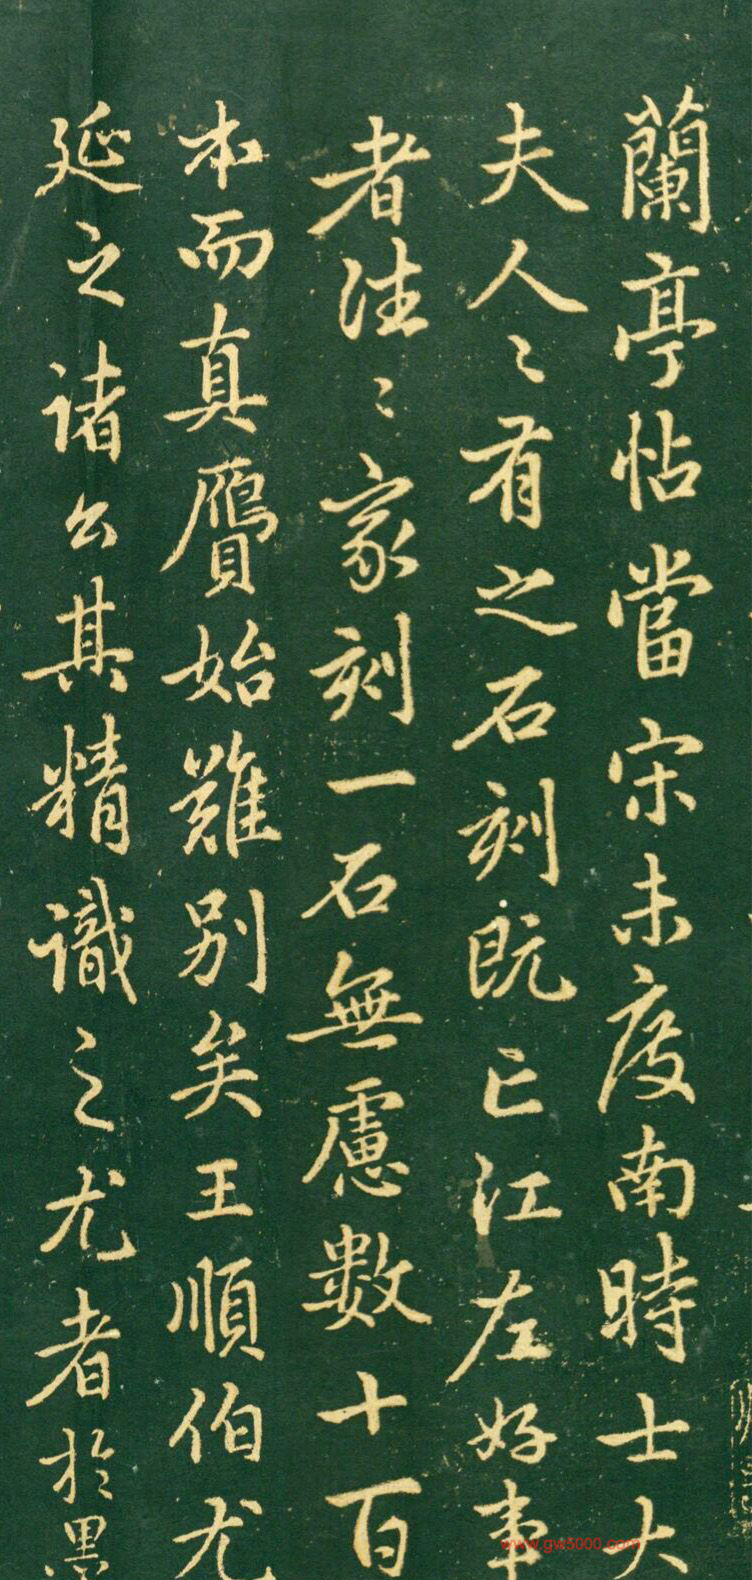 蘭亭帖當宋未度南時士大
夫人〻有之石刻既亡江左好事
者往〻家刻一石無慮數十百
本而真贋始難別矣王順伯尤
延之諸公其精識之尤者於墨
www.gw5000.com